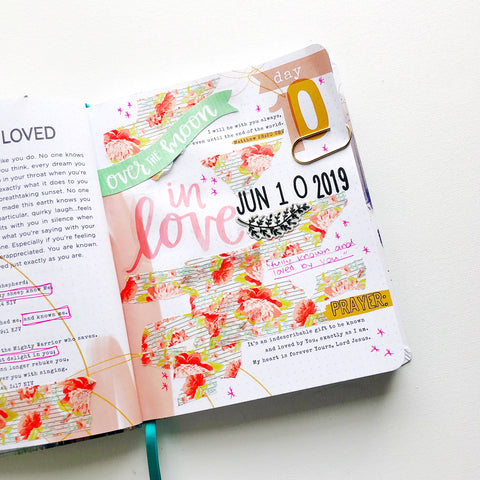 LOVED
like you do. No one knows
you think, every dream you
in your throat when you're
exactly what it does to you
breathtaking sunset. No one
made this earth knows you
particular, quirky laugh...feels
its with you in silence when
what you're saying with your
ne. Especially if you're feeling
nderappreciated. You are known.
ed just exactly as you are.
shepherd;
my sheep know Me,
NIV
ched me, and known me.
9:1
the Mighty Warrior who saves.
at delight in you;
no longer rebuke you,
over you with singing.
3:17 NIV
over the moon
day
0
I will be with you always,
even until the end of the world.
in
love
JUN 10 2019
"fully known and
loved by You."
PRAYER:
It's an indescribable gift to be known
and loved by You, exactly as I am.
My heart is forever Yours, Lord Jesus.